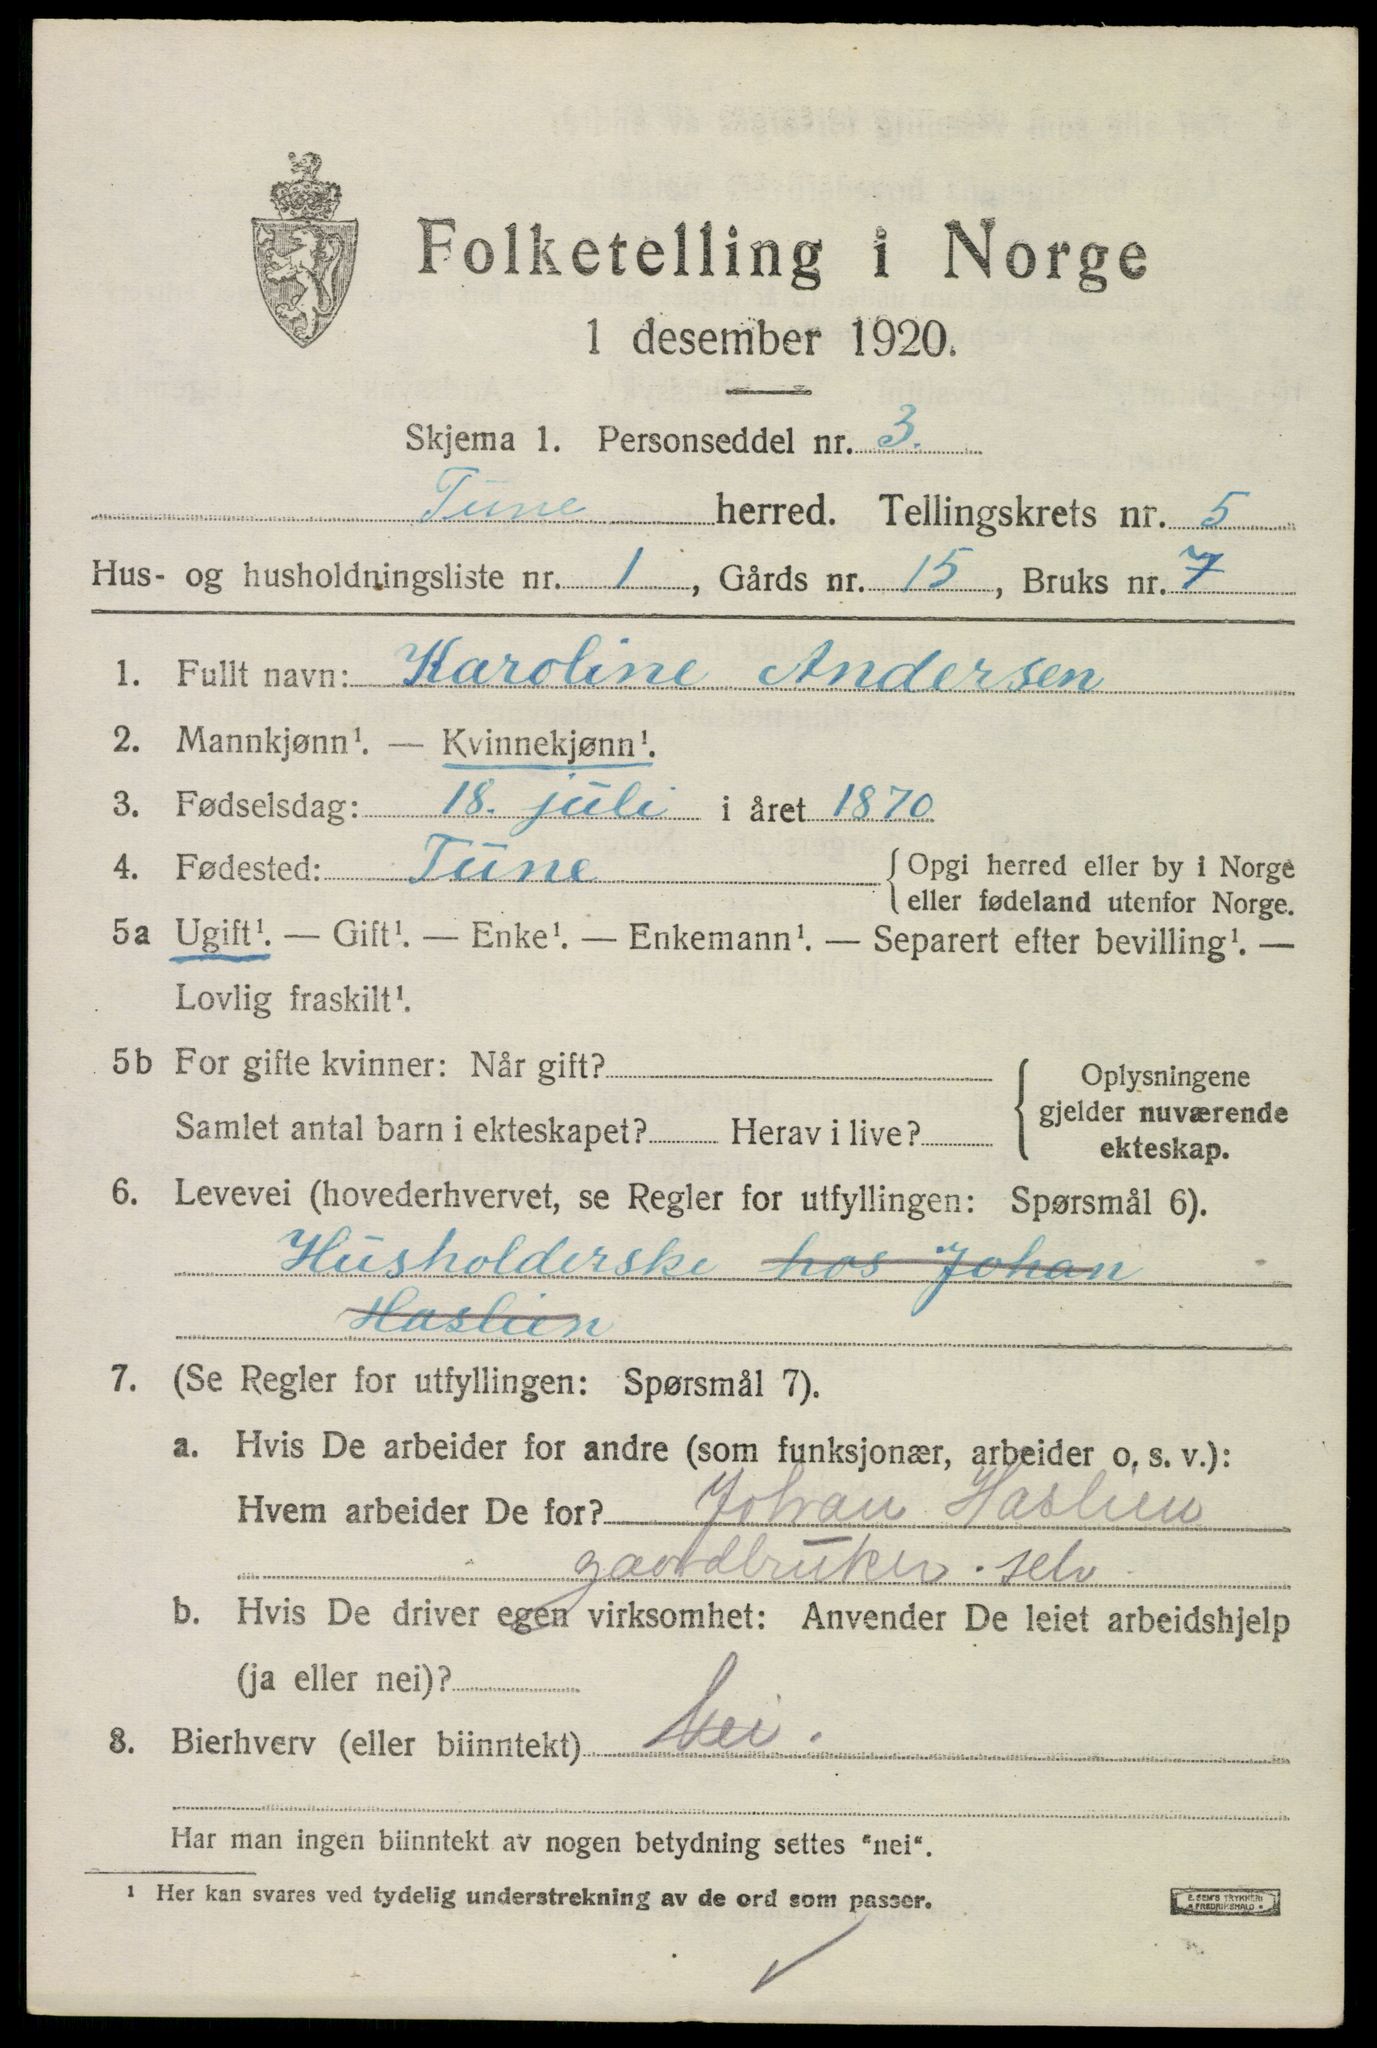 Folketelling i Norge
1 desember 1920.
Skjema 1. Personseddel nr. 3.
Tune herred. Tellingskrets nr. 5
Hus- og husholdningsliste nr. 1, Gårds nr. 15, Bruks nr. 7
1. Fullt navn: Karoline Andersen
2. Mannkjønn¹. — Kvinnekjønn¹.
3. Fødselsdag: 18. juli i året 1870
4. Fødested: Tune { Opgi herred eller by i Norge
eller fødeland utenfor Norge.
5a Ugift¹. — Gift¹. — Enke¹. — Enkemann¹. — Separert efter bevilling¹. —
Lovlig fraskilt¹.
5b For gifte kvinner: Når gift?
Samlet antal barn i ekteskapet? Herav i live?
{ Oplysningene
gjelder nuværende
ekteskap.
6. Levevei (hovederhvervet, se Regler for utfyllingen: Spørsmål 6).
Husholderske hos Johan
Haslien
7. (Se Regler for utfyllingen: Spørsmål 7).
a. Hvis De arbeider for andre (som funksjonær, arbeider o. s. v.):
Hvem arbeider De for? Johan Haslien
gaardbruker. selv
b. Hvis De driver egen virksomhet: Anvender De leiet arbeidshjelp
(ja eller nei)?
8. Bierhverv (eller biinntekt) Nei.
Har man ingen biinntekt av nogen betydning settes "nei".
¹ Her kan svares ved tydelig understrekning av de ord som passer.
E. SEM'S TRYKKERI
FREDRIKSHALD